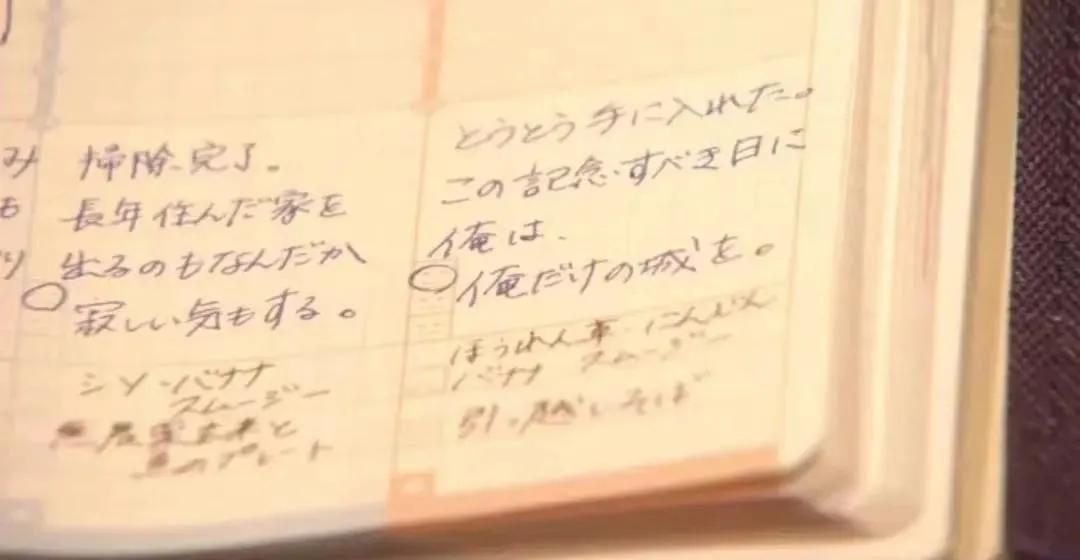 み
も
り
掃除完了。
長年住んだ家を
出るのもなんだか
寂しい気もする。
シソ・バナナ
スムージー
無農薬玄米と
魚のプレート
とうとう手に入れた。
この記念すべき日に
俺は、
俺だけの城を。
ほうれん草・にんじん
バナナ スムージー
引っ越しそば